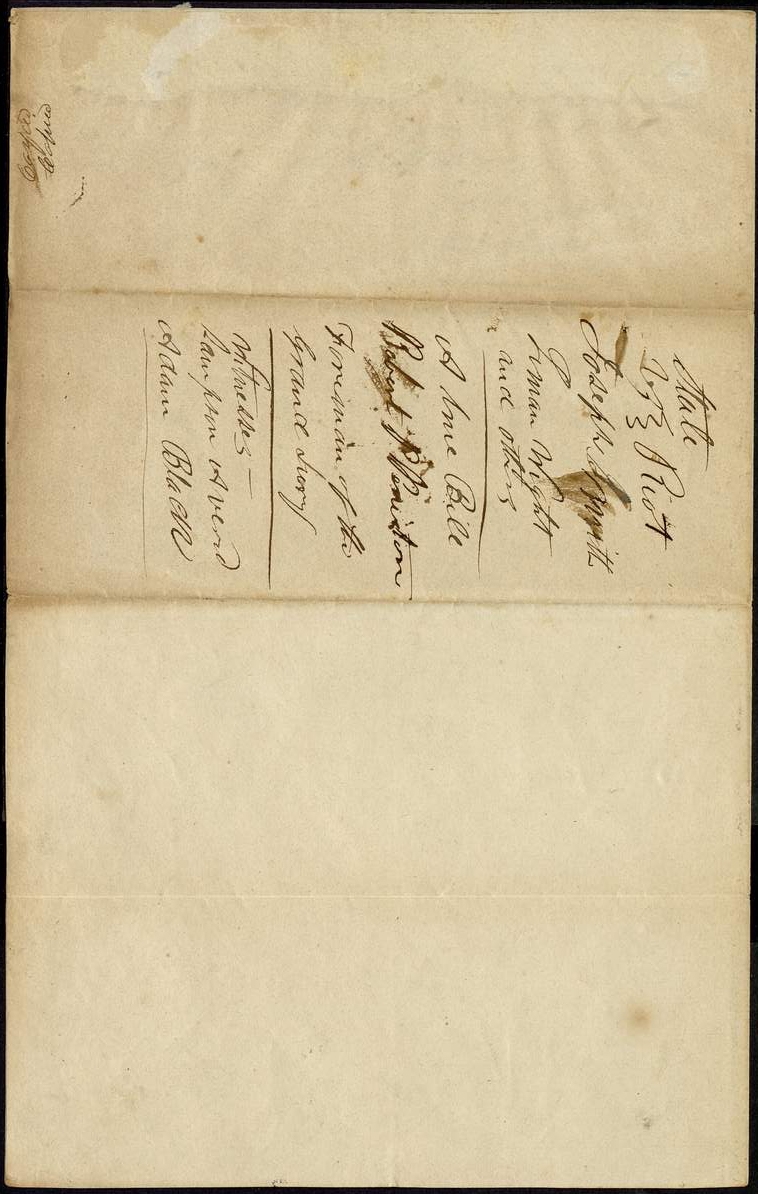 State
vs } Riot
Joseph Smith
Lyman Wight
and others
A true Bill
Robert P Peniston
Foreman of the
Grand Jury
Witnesses –
Sampson Averd
Adam Black